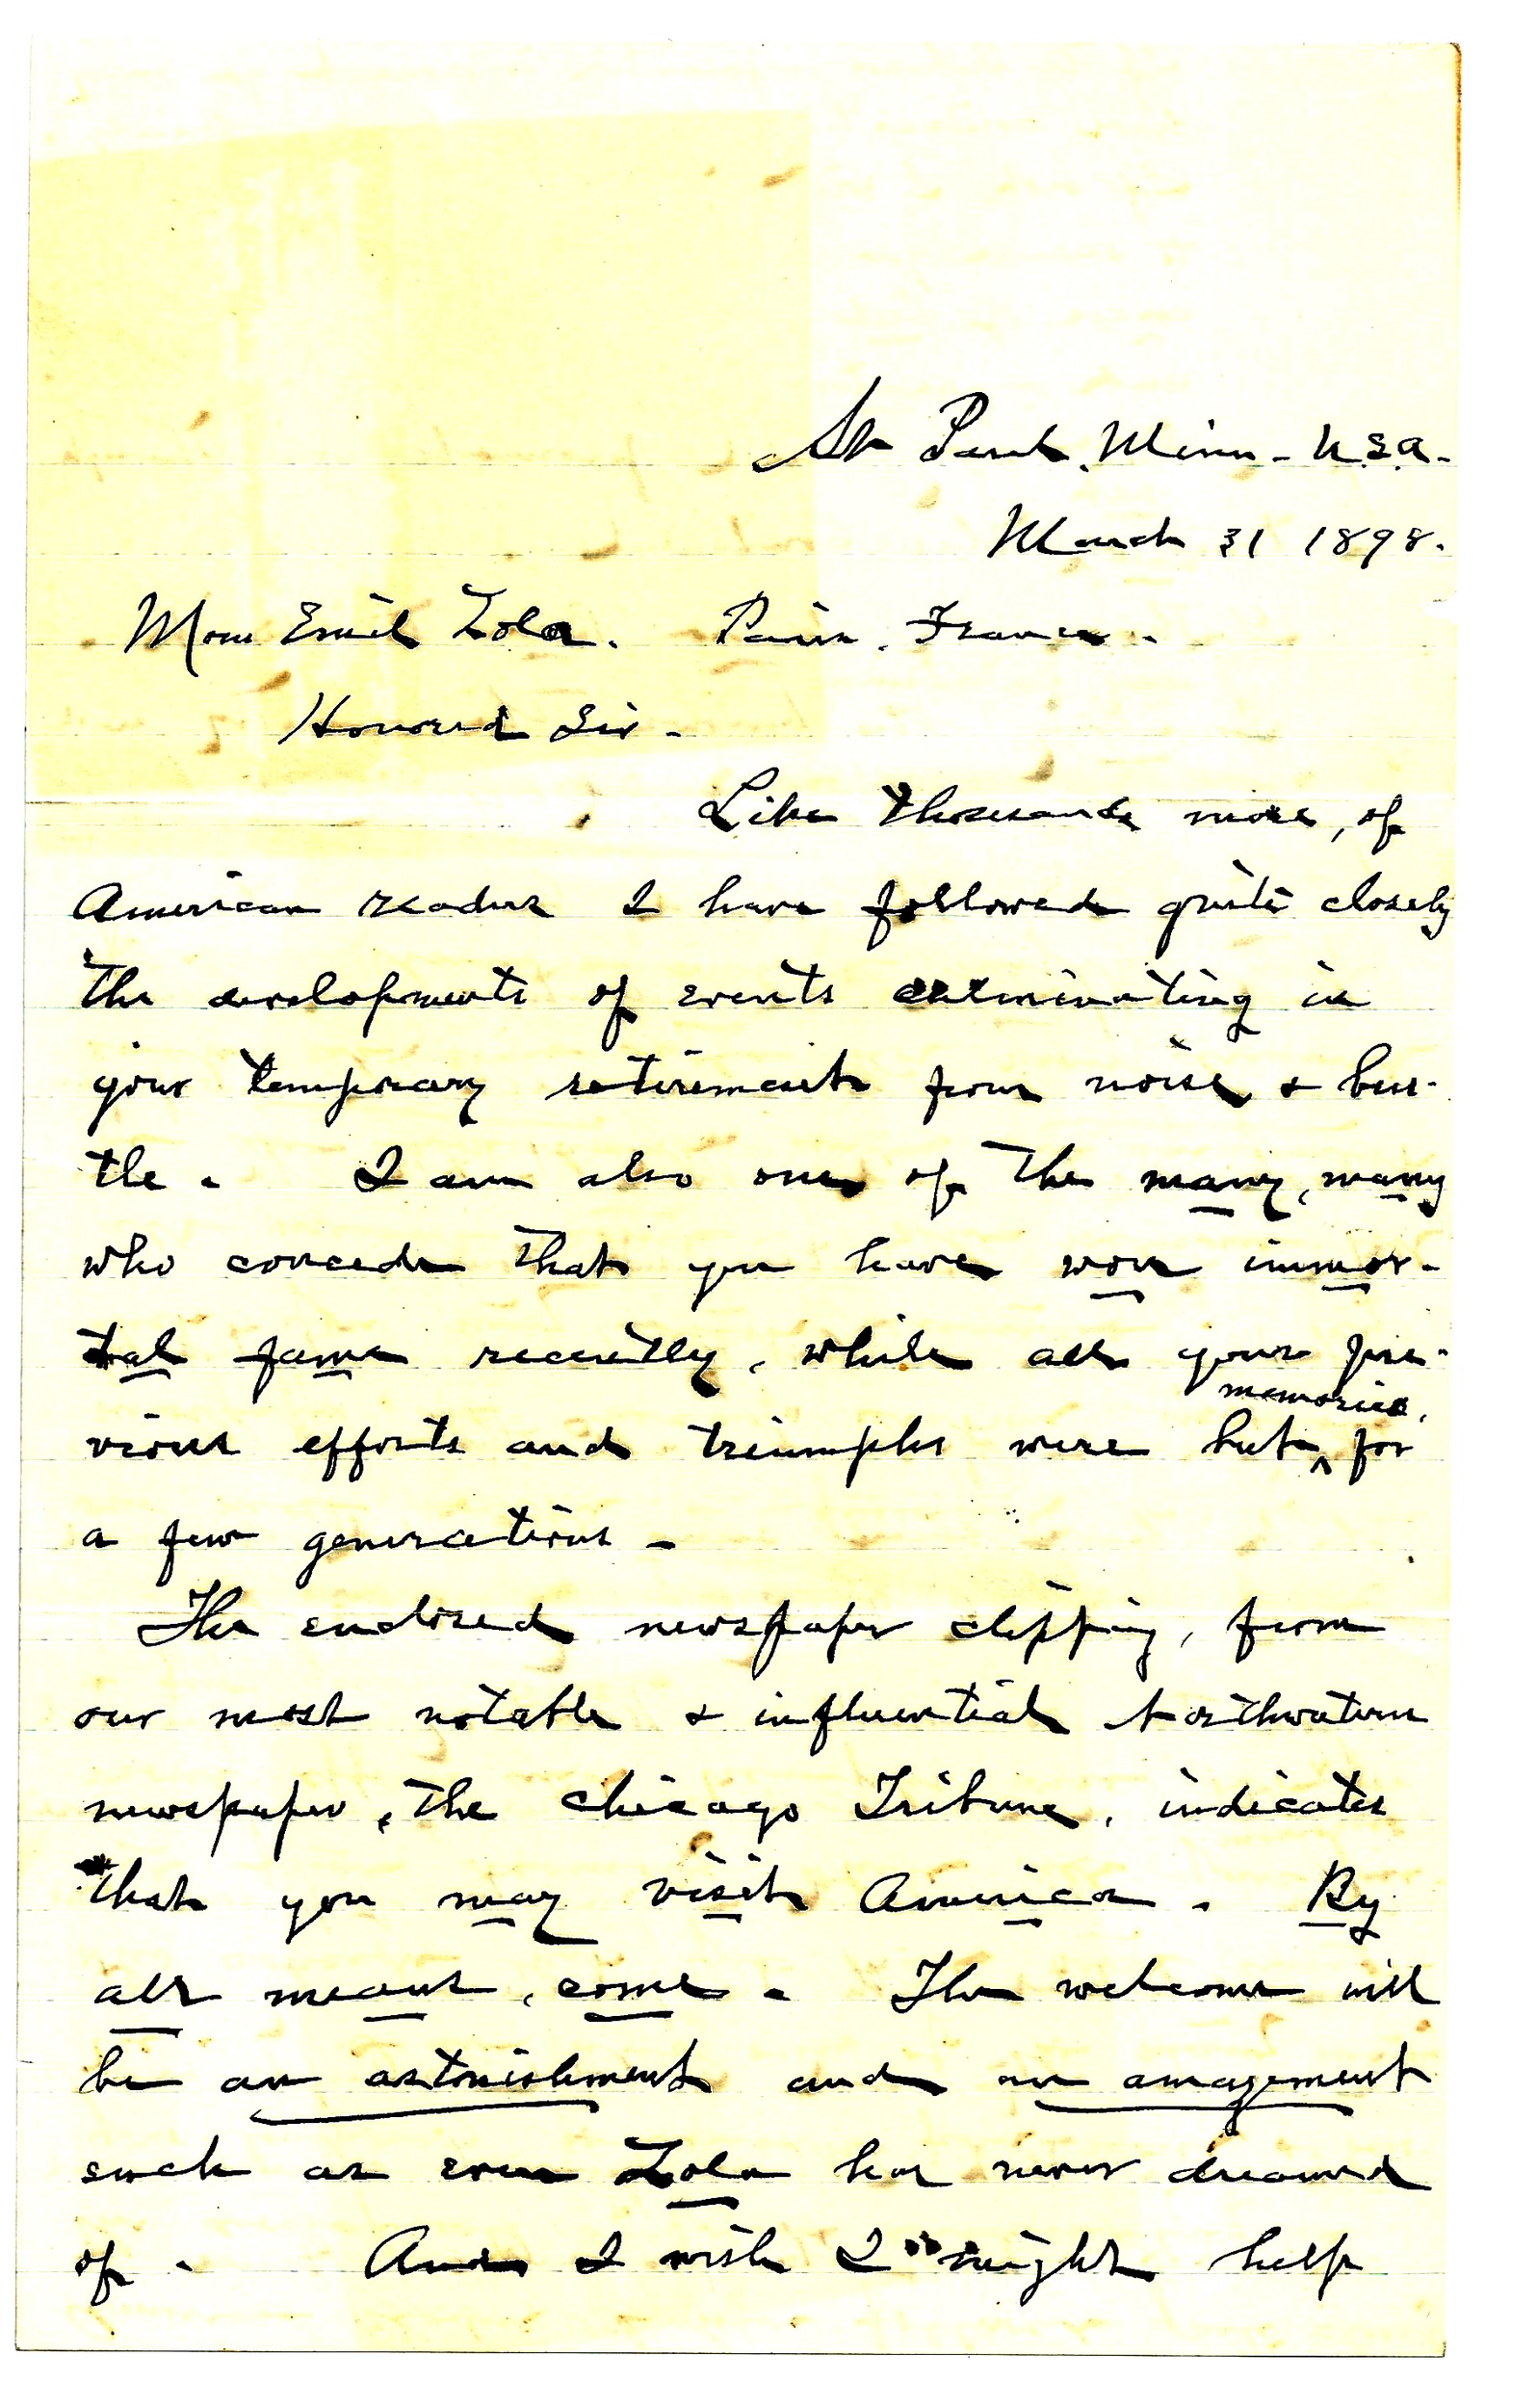 St Paul, Minn - U.S.A.
March 31 1898.
Mons Emil Zola. Paris, France.
Honored Sir -
Like thousands more, of
American readers I have followed quite closely
the developments of events culminating in
your temporary retirement from noise & bus-
tle. I am also one of the many, many
who concede that you have won immor-
tal fame recently, while all your pre-
memories,
vious efforts and triumphs were but ^ for
a few generations -
The enclosed newspaper clipping, from
our most notable & influential Northwestern
newspaper, the Chicago Tribune, indicates
that you may visit America. By
all means, come. The welcome will
be an astonishment and an amazement
such as even Zola has never dreamed
of. And I wish I might help